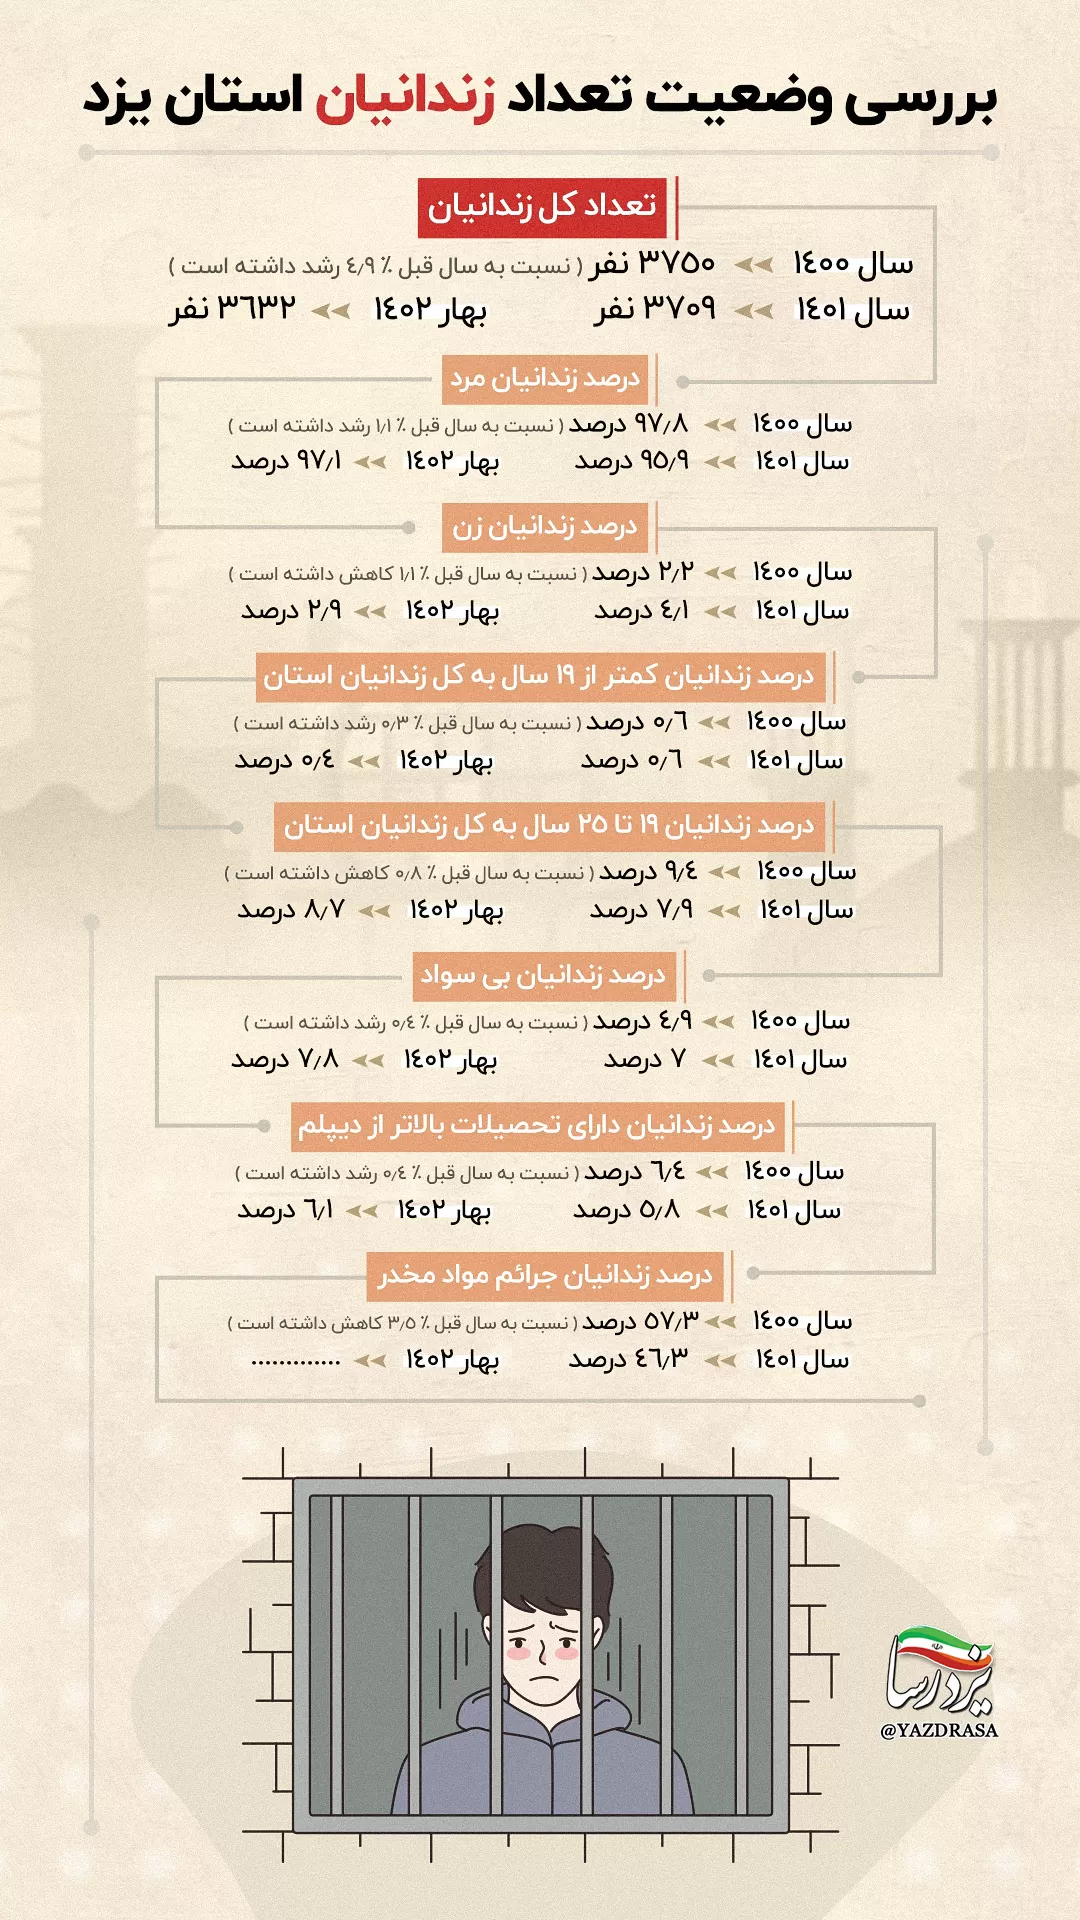 بررسی وضعیت تعداد زندانیان استان یزد
تعداد کل زندانیان
سال ۱٤۰۰ ۳۷٥۰ نفر ( نسبت به سال قبل ٪ ٤٫۹ رشد داشته است )
سال ۱٤۰۱ ۳۷۰۹ نفر بهار ۱٤۰۲ ۳٦۳۲ نفر
درصد زندانیان مرد
سال ۱٤۰۰ ۹۷٫۸ درصد ( نسبت به سال قبل ٪ ۱٫۱ رشد داشته است )
سال ۱٤۰۱ ۹٥٫۹ درصد بهار ۱٤۰۲ ۹۷٫۱ درصد
درصد زندانیان زن
سال ۱٤۰۰ ۲٫۲ درصد ( نسبت به سال قبل ٪ ۱٫۱ کاهش داشته است )
سال ۱٤۰۱ ٤٫۱ درصد بهار ۱٤۰۲ ۲٫۹ درصد
درصد زندانیان کمتر از ۱۹ سال به کل زندانیان استان
سال ۱٤۰۰ ۰٫٦ درصد ( نسبت به سال قبل ٪ ۰٫۳ رشد داشته است )
سال ۱٤۰۱ ۰٫٦ درصد بهار ۱٤۰۲ ۰٫٤ درصد
درصد زندانیان ۱۹ تا ۲٥ سال به کل زندانیان استان
سال ۱٤۰۰ ۹٫٤ درصد ( نسبت به سال قبل ٪ ۰٫۸ کاهش داشته است )
سال ۱٤۰۱ ۷٫۹ درصد بهار ۱٤۰۲ ۸٫۷ درصد
درصد زندانیان بی سواد
سال ۱٤۰۰ ٤٫۹ درصد ( نسبت به سال قبل ٪ ۰٫٤ رشد داشته است )
سال ۱٤۰۱ ۷ درصد بهار ۱٤۰۲ ۷٫۸ درصد
درصد زندانیان دارای تحصیلات بالاتر از دیپلم
سال ۱٤۰۰ ٦٫٤ درصد ( نسبت به سال قبل ٪ ۰٫٤ رشد داشته است )
سال ۱٤۰۱ ٥٫۸ درصد بهار ۱٤۰۲ ٦٫۱ درصد
درصد زندانیان جرائم مواد مخدر
سال ۱٤۰۰ ٥۷٫۳ درصد ( نسبت به سال قبل ٪ ۳٫٥ کاهش داشته است )
سال ۱٤۰۱ ٤٦٫۳ درصد بهار ۱٤۰۲ .............
یزدرسا
@YAZDRASA